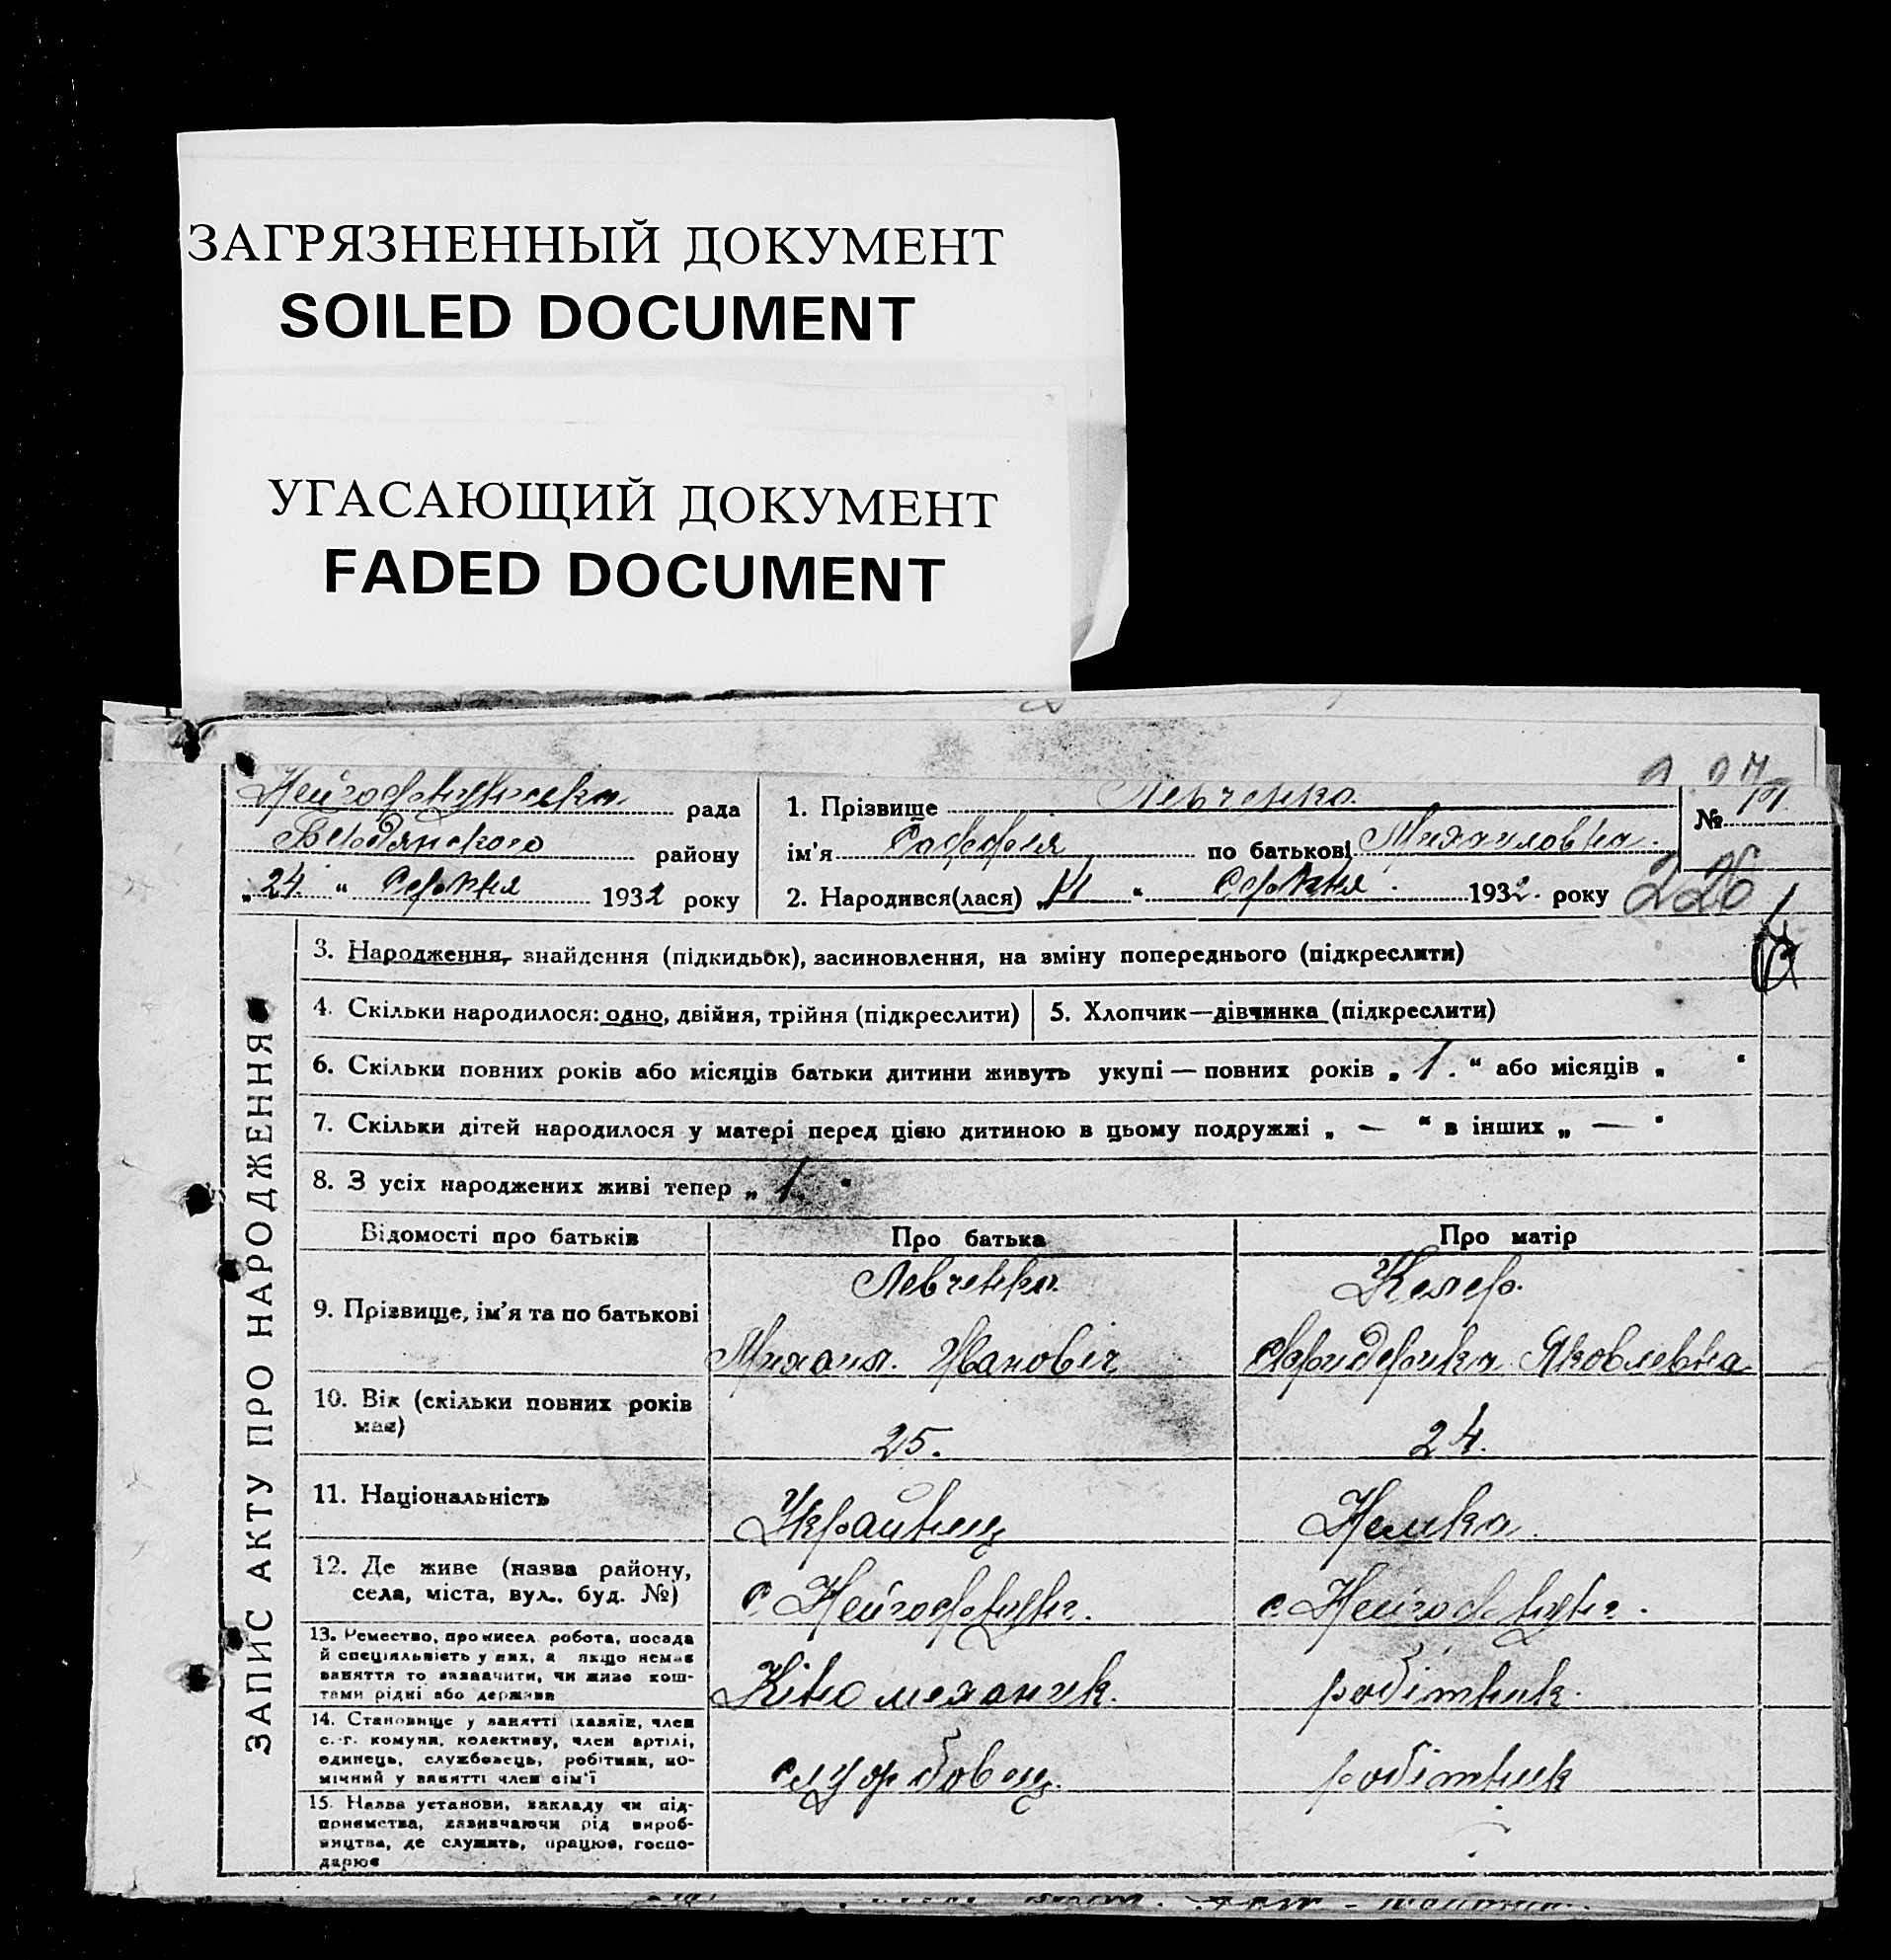 ЗАГРЯЗНЕННЫЙ ДОКУМЕНТ
SOILED DOCUMENT
УГАСАЮЩИЙ ДОКУМЕНТ
FADED DOCUMENT
ЗАПИС АКТУ ПРО НАРОДЖЕННЯ
рада
району
„24.“ Серпня 1932 року
1. Прізвище Левченко.
ім'я по батькові Михаиловна.
2. Народився(лася) Серпня. 1932. року
№
226
3. Народження, знайдення (підкидьок), засиновлення, на зміну попереднього (підкреслити)
4. Скільки народилося: одно, двійня, трійня (підкреслити)
5. Хлопчик—дівчинка (підкреслити)
6. Скільки повних років або місяців батьки дитини живуть укупі — повних років „ 1. “ або місяців „ “
7. Скільки дітей народилося у матері перед цією дитиною в цьому подружжі „ — “ в інших „ — “
8. З усіх народжених живі тепер „ 1. “
Відомості про батьків Про батька Про матір
9. Прізвище, ім'я та по батькові
Левченко.
Михаил. Иванович
Келер.
Фридерика Яковлевна
10. Вік (скільки повних років
має)
25.
24.
11. Національність
Українец
Немка.
12. Де живе (назва району,
села, міста, вул., буд. №)
с. Нейгофнунг.
с. Нейгофнунг.
13. Ремество, промисел, робота, посада
й спеціяльність у них, а якщо немає
заняття то зазначити, чи живе кош-
тами рідні або держави
Кіно механик.
робітник.
14. Становище у занятті (хазяїн, член
с.-г. комуни, колективу, член артілі,
одинець, службовець, робітник, по-
мічний у занятті член сім'ї
службовец.
робітник
15. Назва установи, закладу чи під-
приємства, зазначаючи рід вироб-
ництва, де служить, працює, госпо-
дарює